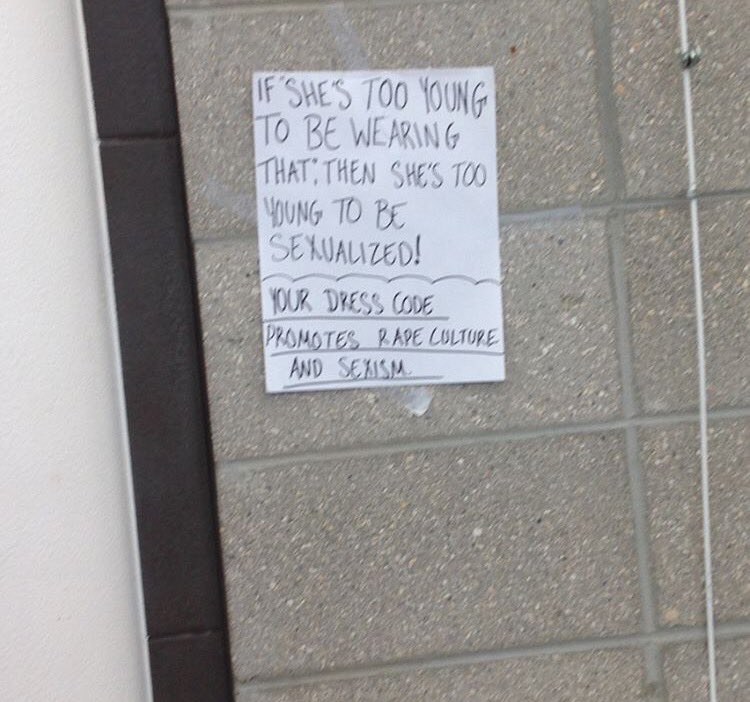 IF "SHE'S TOO YOUNG
TO BE WEARING
THAT", THEN SHE'S TOO
YOUNG TO BE
SEXUALIZED!
YOUR DRESS CODE
PROMOTES RAPE CULTURE
AND SEXISM.